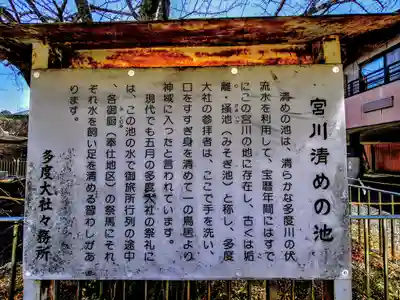 宮川清めの池
清めの池は、清らかな多度川の伏
流水を利用して、宝暦年間にはすで
にこの宮川の地に存在し、古くは垢
離掻池（みそぎ池）と称し、多度
大社の参拝者は、ここで手を洗い、
口をすすぎ身を清めて一の鳥居より
神域に入ったと言われています。
現代でも五月の多度大社の祭礼に
は、この池の水で御旅所行列の途中
各御廚（奉仕地区）の祭馬にそれ
ぞれ水を飼い足を清める習わしがあ
ります。
多度大社々務所